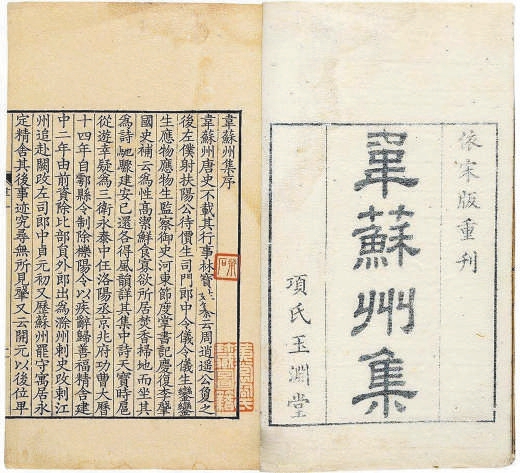 依宋版重刊
韋蘇州集
項氏玉淵堂
韋蘇州集序
韋蘇州唐史不載其行事林寶纂云周逍遥公夐之
後左僕射扶陽公待價生司門郎中令儀令儀生鑾鑾
生應物應物生監察御史河東節度掌書記慶復李肇
國史補云為性高潔鮮食寡欲所居焚香掃地而坐其
為詩馳驟建安已還各得風韻詳其集中詩天寶時扈
從遊幸疑為三衛永泰中任洛陽丞京兆府功曹大曆
十四年自鄠縣令制除櫟陽令以疾辭歸善福精舍建
中二年由前資除比部員外郎出為滁州刺史改刺江
州追赴闕改左司郎中貞元初又歷蘇州罷守寓居永
定精舍其後事迹究尋無所見肇又云開元以後位卑